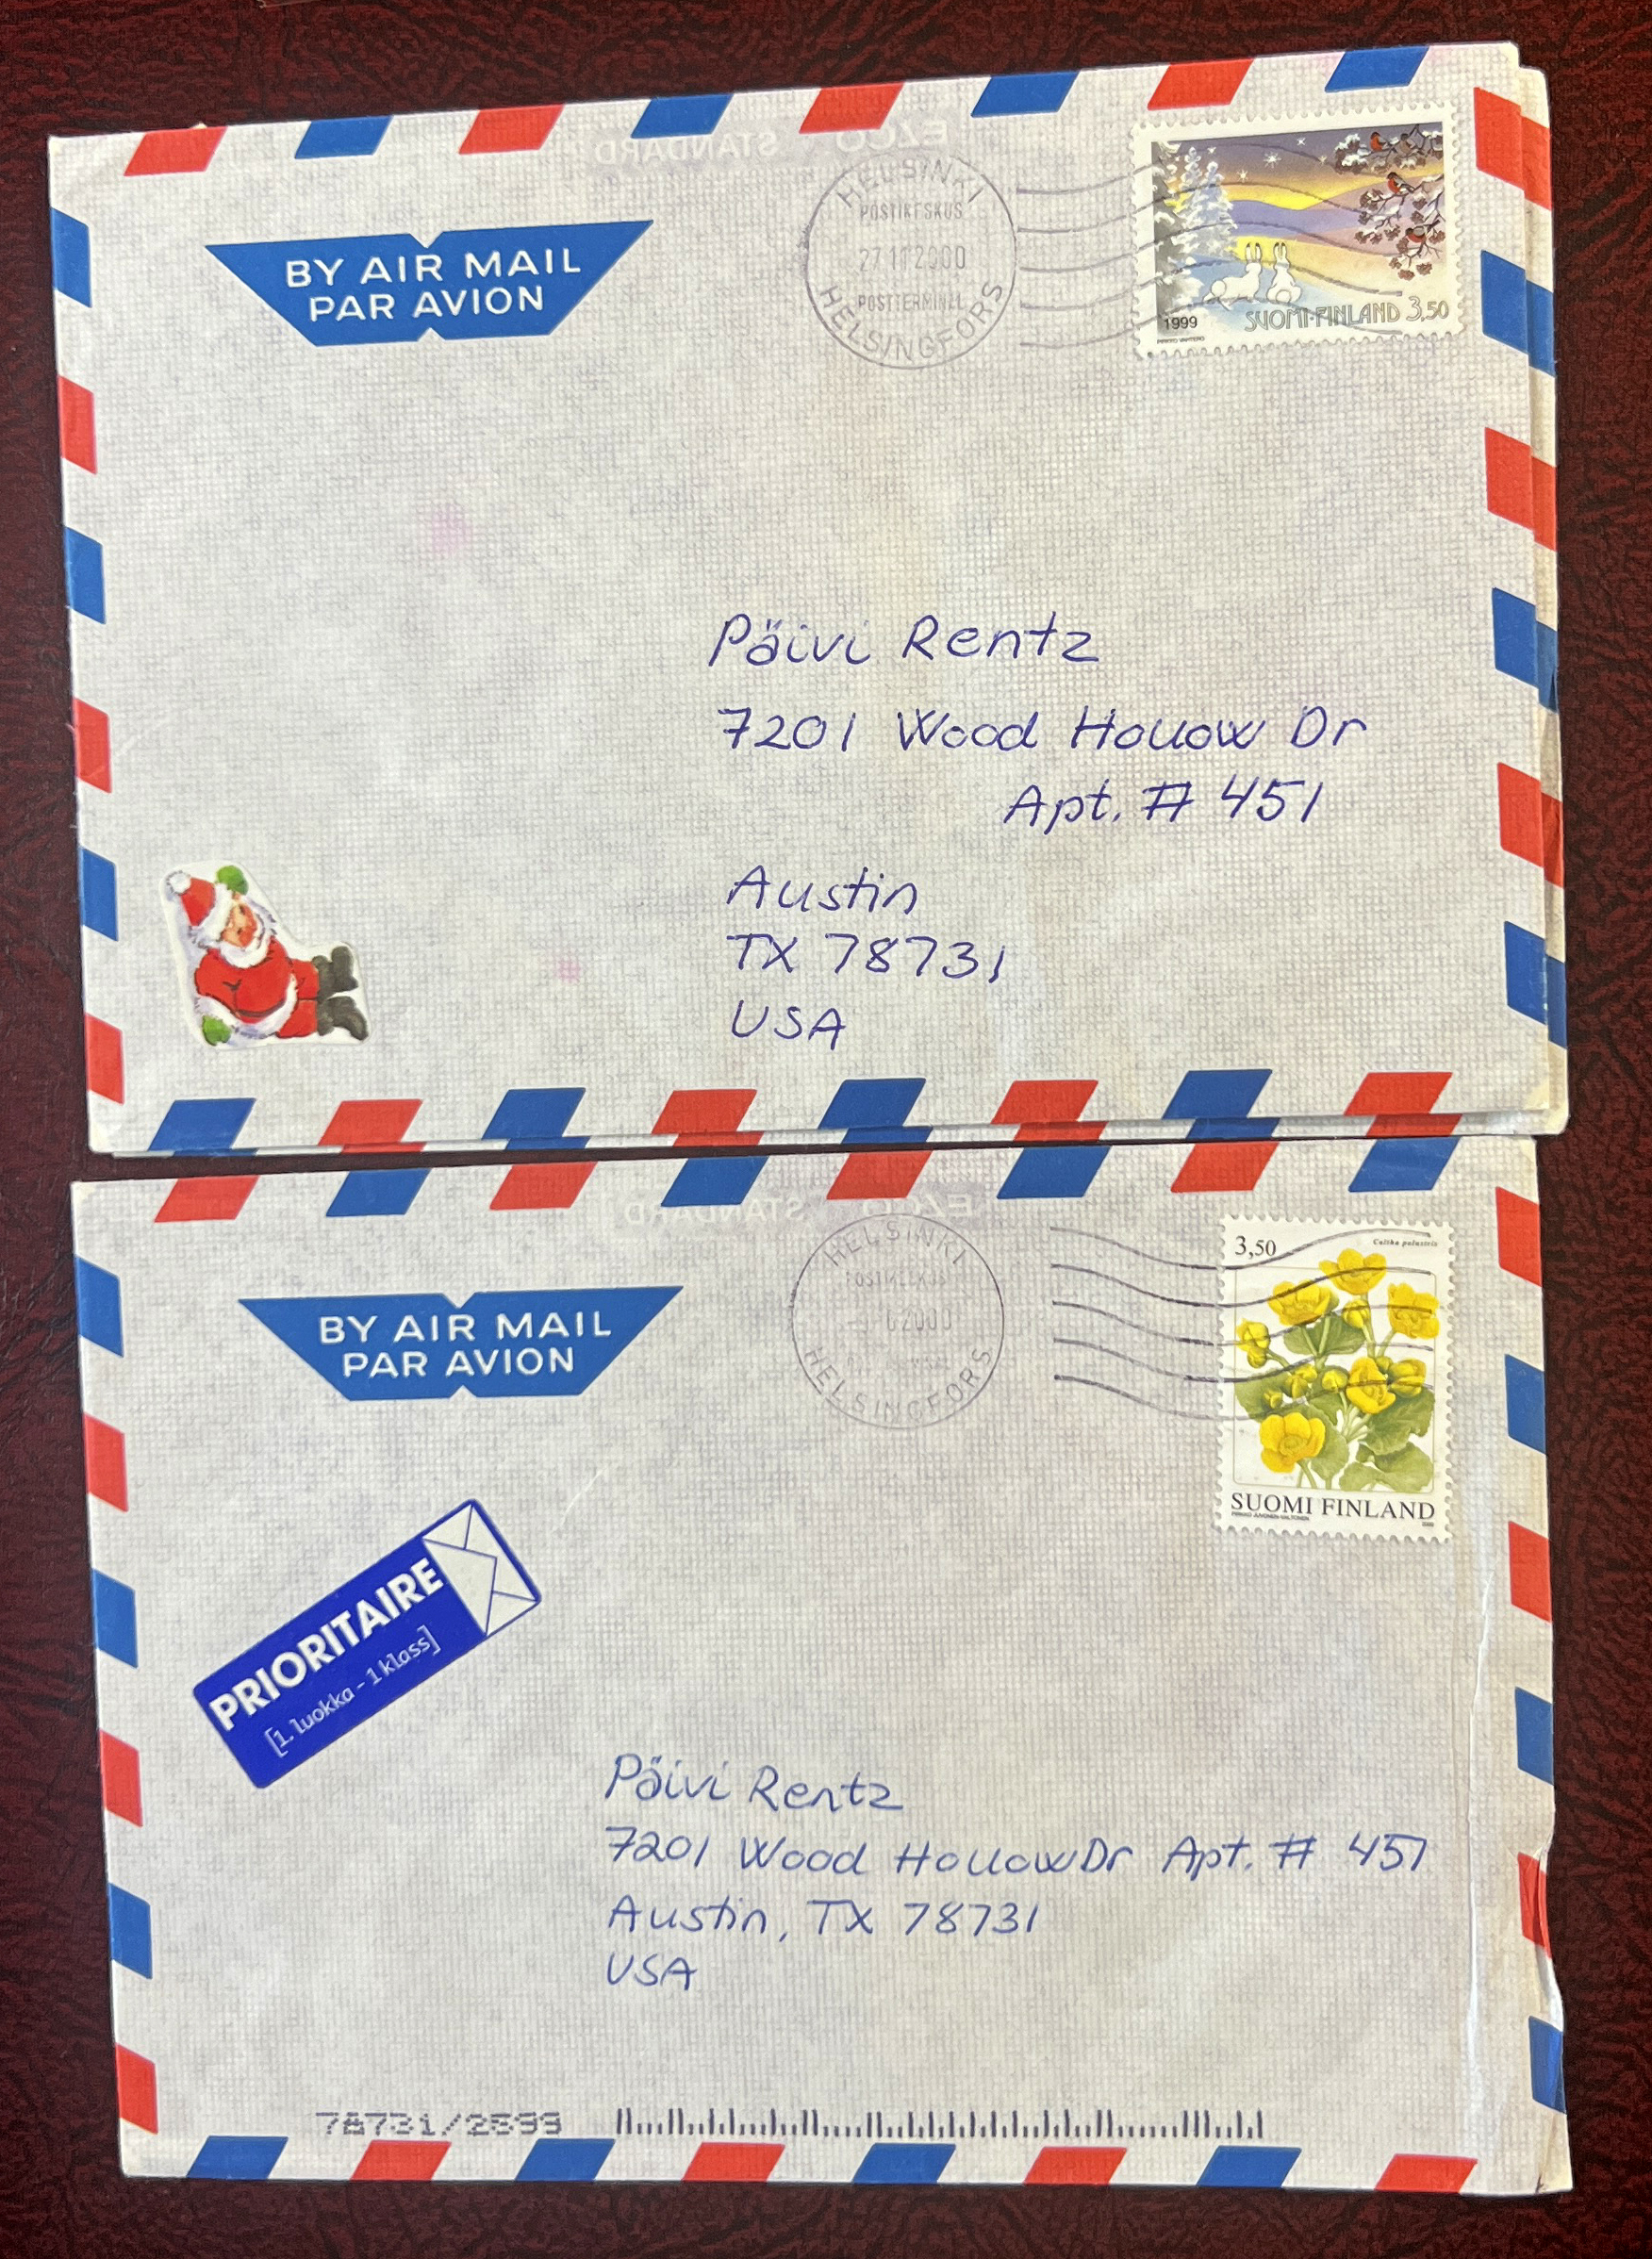 EZCO STANDARD
BY AIR MAIL
PAR AVION
HELSINKI
POSTIKESKUS
POSTTERMINAL
HELSINGFORS
1999
SUOMI·FINLAND 3,50
Päivi Rentz
7201 Wood Hollow Dr
Apt. # 451
Austin
TX 78731
USA
EZCO STANDARD
BY AIR MAIL
PAR AVION
HELSINKI
POSTIKESKUS
2000
HELSINGFORS
3,50
Caltha palustris
SUOMI FINLAND
PRIORITAIRE
[1. luokka - 1 klass]
Päivi Rentz
7201 Wood Hollow Dr Apt. # 451
Austin, TX 78731
USA
78731/2899